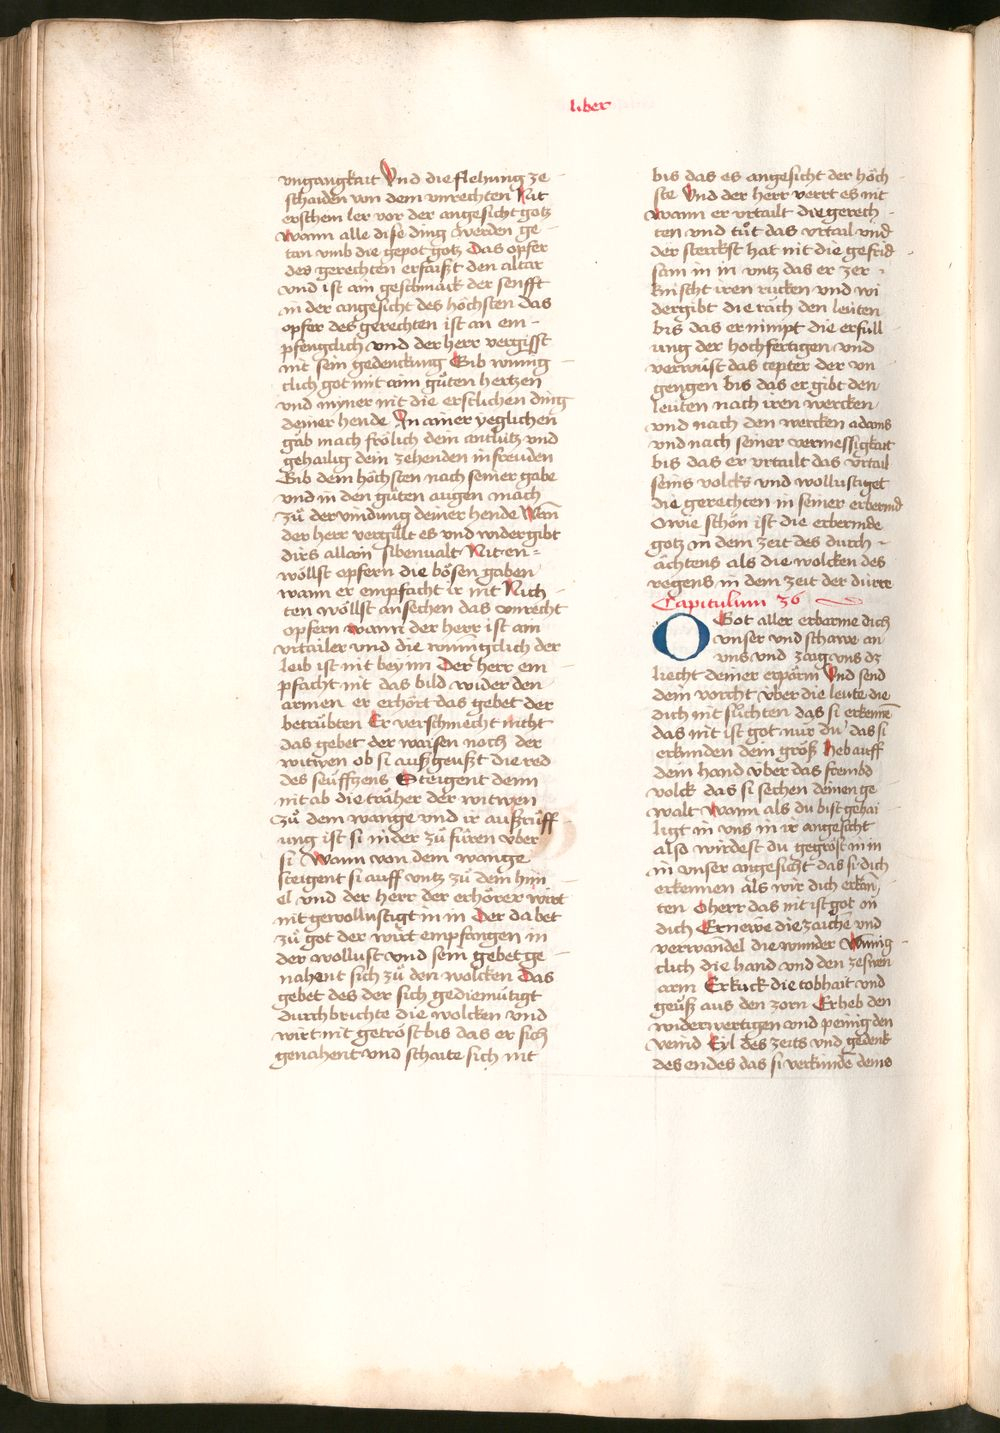 liber
vngangkait Vnd die flehung ze
schaiden von dem vnrechten Nit
erschein ler vor der angesicht gotz
wann alle dise ding werden ge
tan vmb die gepot gotz Das opfer
des gerechten erfaißt den altar
vnd ist ain geschmack der senfft
in der angesicht des höchsten das
opfer des gerechten ist an em-
pfengclich vnd der herr vergisst
nit sein gedenckung Gib winnig
clich got mit aim gůten hertzen
vnd myner nit die erstlichen ding
deiner hende In ainer yeglichen
gab mach frölich dein antlütz vnd
gehailig dein zehenden in freuden
Gib dem höchsten nach seiner gabe
vnd in den gůten augen mach
zů der vindung deiner hende Wan̄
der herr vergült es vnd widergibt
dirs allain sibenualt Nit en=
wöllst opfern die bösen gaben
wann er empfacht ir nit Nich
ten wöllst ansechen das vnrecht
opfern wann der herr ist ain
vrtailer vnd die winnigclich der
leib ist nit bey im Der herr em
pfacht nit das bild wider den
armen er erhört das gebet der
betrübten Er verschmecht nicht
das gebet der waisen noch der
witwen ob si außgeußt die red
des seüfftzens Steigent denn
nit ab die träher der witwen
zů dem wange vnd ir außrüff
ung ist si in der zů füren vber
si Wann von dem wange
steigent si auff vntz zů dem him
el vnd der herr der erhörer wirt
nit gewollustigt in in Der da bet
zů got der wirt empfangen in
der wollust vnd sein gebet ge
nahent sich zů den wolcken Das
gebet des der sich gediemütigt
durchbrichte die wolcken vnd
wirt nit getröst bis das er sich
genahent vnd schaite sich nit
bis das es angesicht der höch
ste Vnd der herr verrt es nit
Wann er vrtailt die gerech-
ten vnd tůt das vrtail vnd
der sterckst hat nit die gefrid
sam in in vntz das er zer-
knischt iren rucken vnd wi
dergibt die räch den leüten
bis das er nimpt die erfüll
ung der hochfertigen vnd
verwüst das cepter der vn
gengen bis das er gibt den
leüten nach iren wercken
vnd nach den wercken adams
vnd nach seiner vermessigkait
bis das er vrtailt das vrtail
seins volcks vnd wollustiget
die gerechten in seiner erbermd
O wie schön ist die erbermde
gotz in dem zeit des durch-
ächtens als die wolcken des
regens in dem zeit der dürre
Capitulum 36
O Got aller erbarme dich
vnser vnd schawe an
vns vnd zaig vns dz
liecht deiner erpärm Vnd send
dein vorcht vber die leüte die
dich nit süchten das si erkenne͞
das nit ist got nur du das si
erkünden dein größ heb auff
dein hand vber das frembd
volck das si sechen deinen ge
walt Wann als du bist gehai
ligt in vns in ir angesicht
also wirdest du gegröst in in
in vnser angesicht das si dich
erkennen als wir dich erkan̄
ten O herr das nit ist got on
dich Ernewe die zaichē vnd
verwandel die wunder Winnig
clich die hand vnd den zeswen
arm Erkuck die tobhait vnd
geüß aus den zorn Erheb den
widerwertigen vnd peinig den
veind Eyl des zeits vnd gedenk
des endes das si verkünde͞ deine